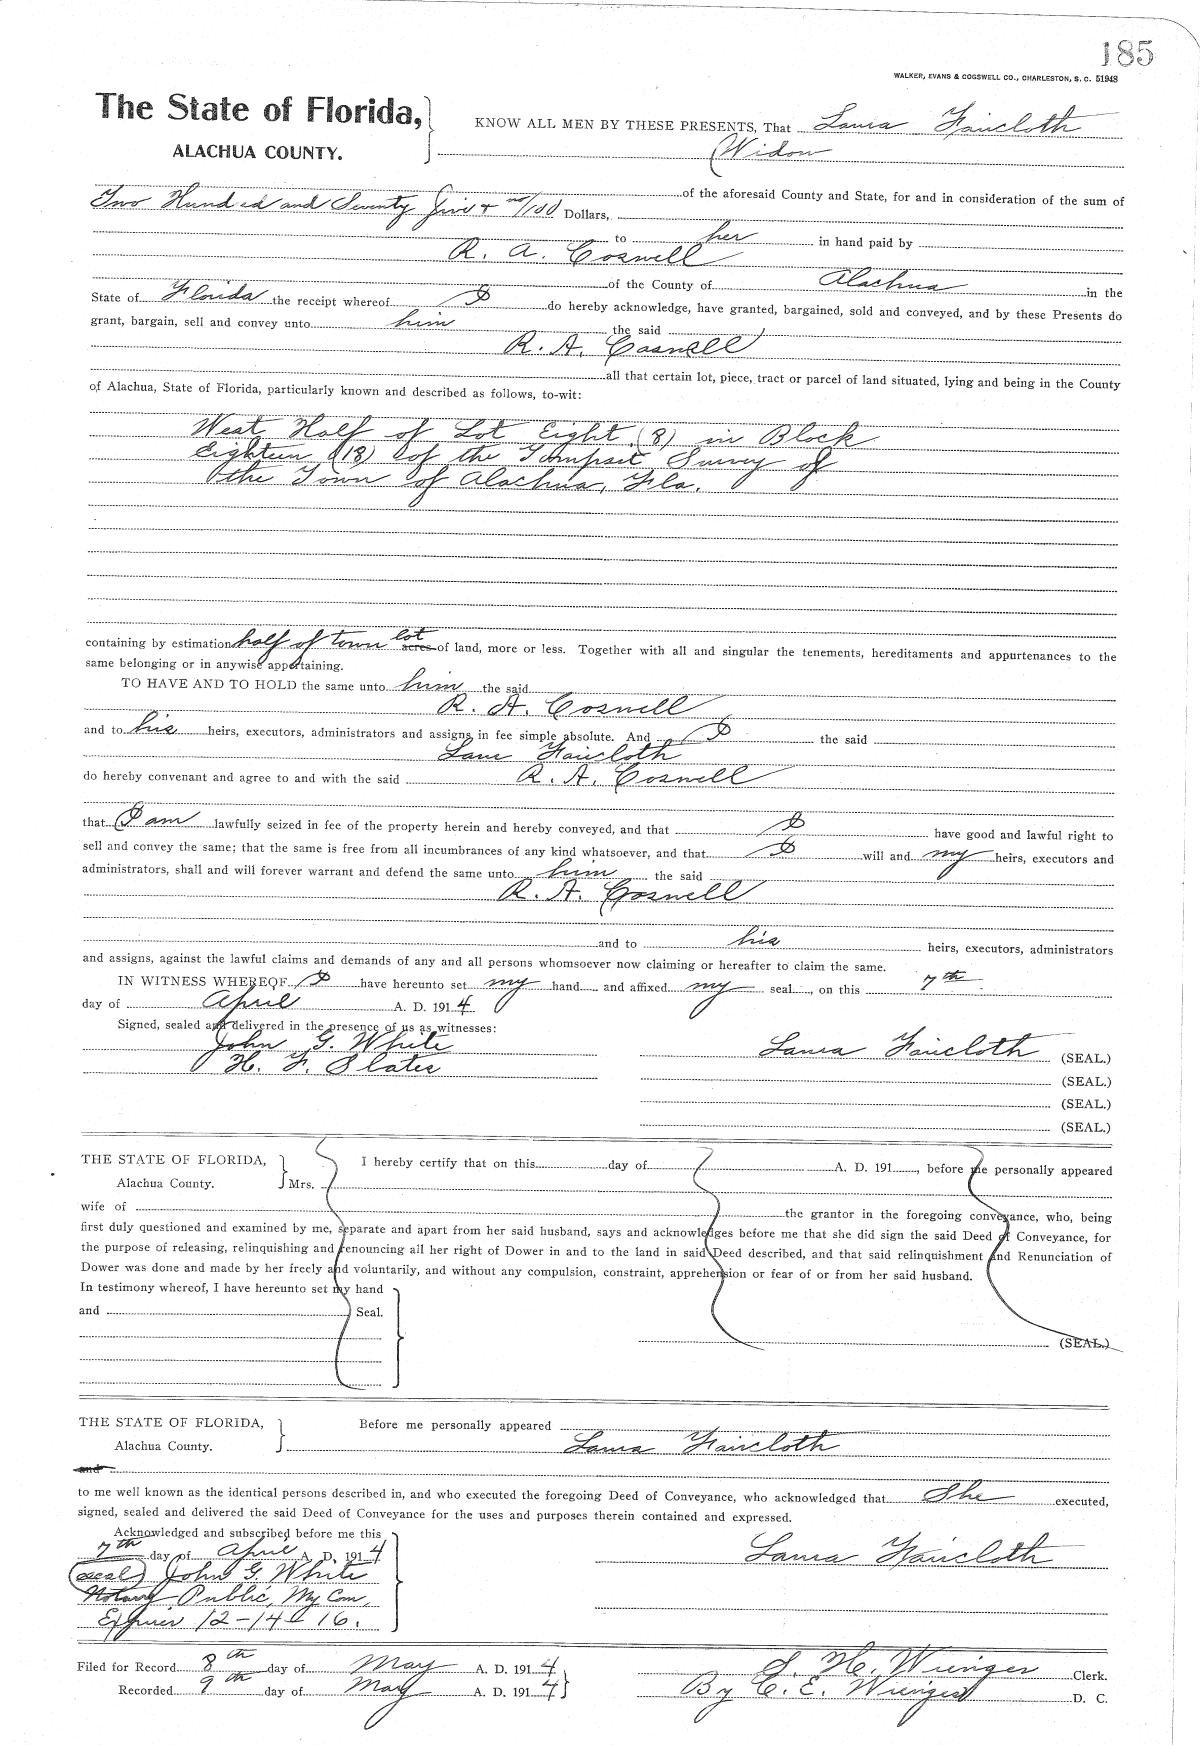 185
WALKER, EVANS & COGSWELL CO., CHARLESTON, S. C. 51948
The State of Florida,
ALACHUA COUNTY.
KNOW ALL MEN BY THESE PRESENTS, That Laura Faircloth
(Widow
of the aforesaid County and State, for and in consideration of the sum of
Two Hundred and Seventy five & no/100 Dollars,
to her in hand paid by
R. A. Coswell
of the County of Alachua in the
State of Florida the receipt whereof I do hereby acknowledge, have granted, bargained, sold and conveyed, and by these Presents do
grant, bargain, sell and convey unto him the said
R. A. Coswell
all that certain lot, piece, tract or parcel of land situated, lying and being in the County
of Alachua, State of Florida, particularly known and described as follows, to-wit:
West Half of Lot Eight (8) in Block
Eighteen (18) of the Tompset Survey of
the Town of Alachua, Fla.
containing by estimation half of town lot acres of land, more or less. Together with all and singular the tenements, hereditaments and appurtenances to the
same belonging or in anywise appertaining.
TO HAVE AND TO HOLD the same unto him the said
R. A. Coswell
and to his heirs, executors, administrators and assigns, in fee simple absolute. And I the said
Laura Faircloth
do hereby convenant and agree to and with the said R. A. Coswell
that I am lawfully seized in fee of the property herein and hereby conveyed, and that I have good and lawful right to
sell and convey the same; that the same is free from all incumbrances of any kind whatsoever, and that I will and my heirs, executors and
administrators, shall and will forever warrant and defend the same unto him the said
R. A. Coswell
and to his heirs, executors, administrators
and assigns, against the lawful claims and demands of any and all persons whomsoever now claiming or hereafter to claim the same.
IN WITNESS WHEREOF I have hereunto set my hand and affixed my seal, on this 7th
day of April A. D. 1914
Signed, sealed and delivered in the presence of us as witnesses:
John G. White
H. F. Slater
Laura Faircloth (SEAL.)
(SEAL.)
(SEAL.)
(SEAL.)
THE STATE OF FLORIDA,
Alachua County.
I hereby certify that on this day of A. D. 191 , before me personally appeared
Mrs.
wife of the grantor in the foregoing conveyance, who, being
first duly questioned and examined by me, separate and apart from her said husband, says and acknowledges before me that she did sign the said Deed of Conveyance, for
the purpose of releasing, relinquishing and renouncing all her right of Dower in and to the land in said Deed described, and that said relinquishment and Renunciation of
Dower was done and made by her freely and voluntarily, and without any compulsion, constraint, apprehension or fear of or from her said husband.
In testimony whereof, I have hereunto set my hand
and Seal.
(SEAL.)
THE STATE OF FLORIDA,
Alachua County.
Before me personally appeared
Laura Faircloth
and
to me well known as the identical persons described in, and who executed the foregoing Deed of Conveyance, who acknowledged that She executed,
signed, sealed and delivered the said Deed of Conveyance for the uses and purposes therein contained and expressed.
Acknowledged and subscribed before me this
7th day of April A. D. 1914
(seal) John G. White
Notary Public, My Com,
Expires 12-14-16.
Laura Faircloth
Filed for Record 8th day of May A. D. 1914
Recorded 9th day of May A. D. 1914
S. H. Wienges Clerk.
By C. E. Wienges D. C.